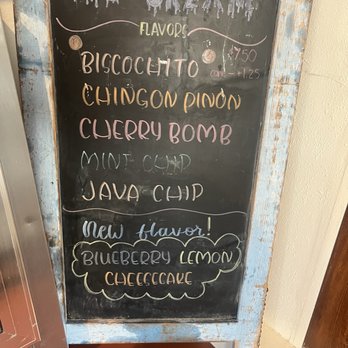 FLAVORS
BISCOCHITO
CHINGON PIÑON
CHERRY BOMB
MINT CHIP
JAVA CHIP
New flavor!
BLUEBERRY LEMON
CHEESECAKE